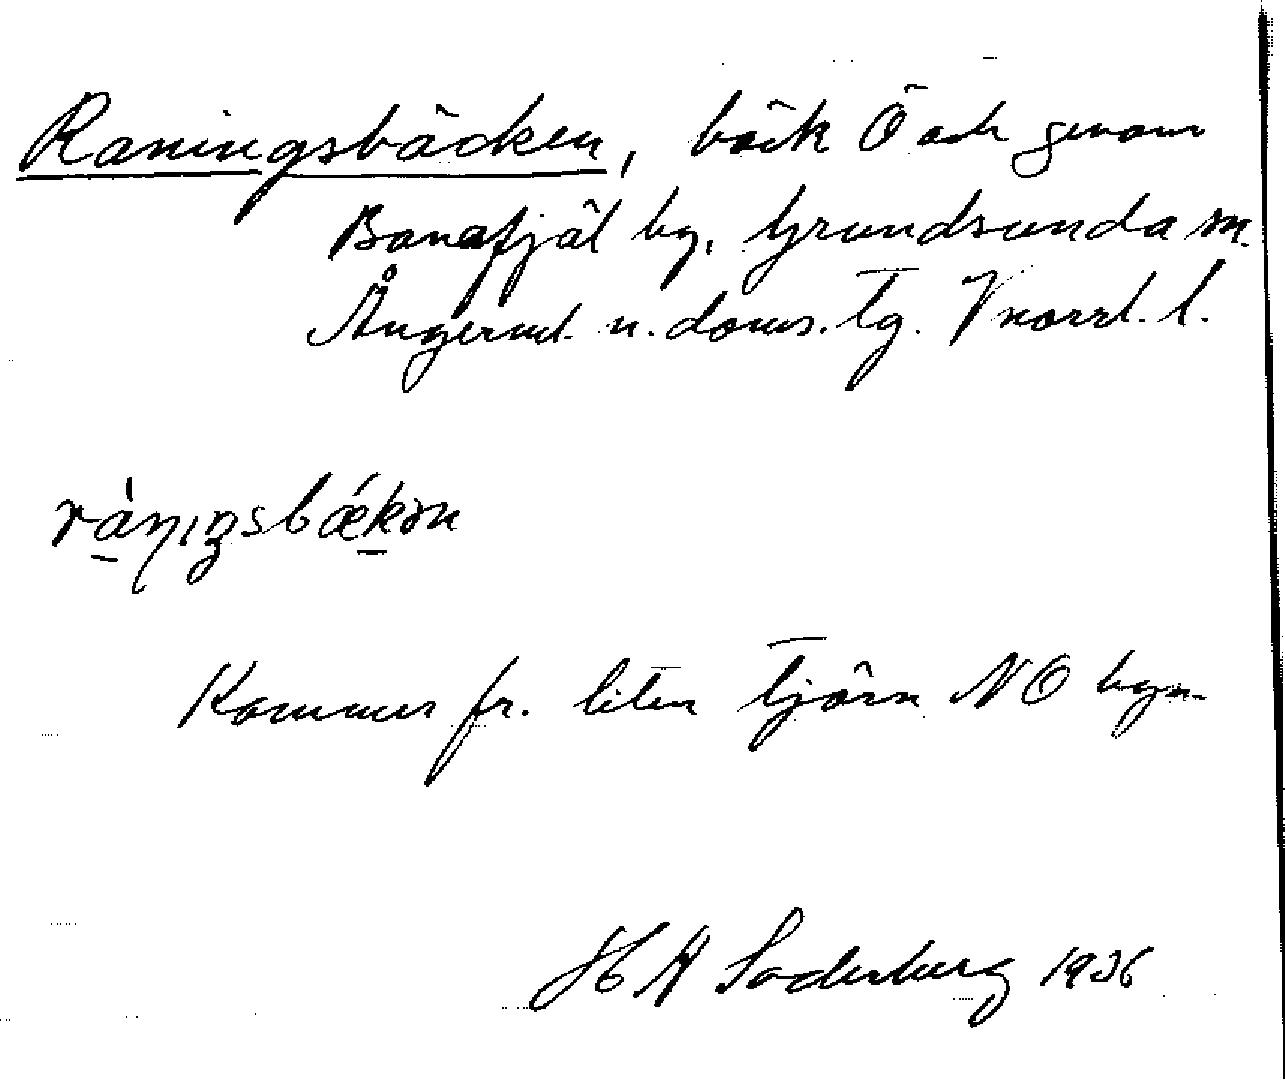 Raningsbäcken, bäck Ö och genom
Banafjäl by, Grundsunda sn.
Ångerml. n. doms. tg. Vnorrl. l.
ràṇıŋsbǽkən
Kommer fr. liten tjärn NO byn.
H A Söderberg 1936